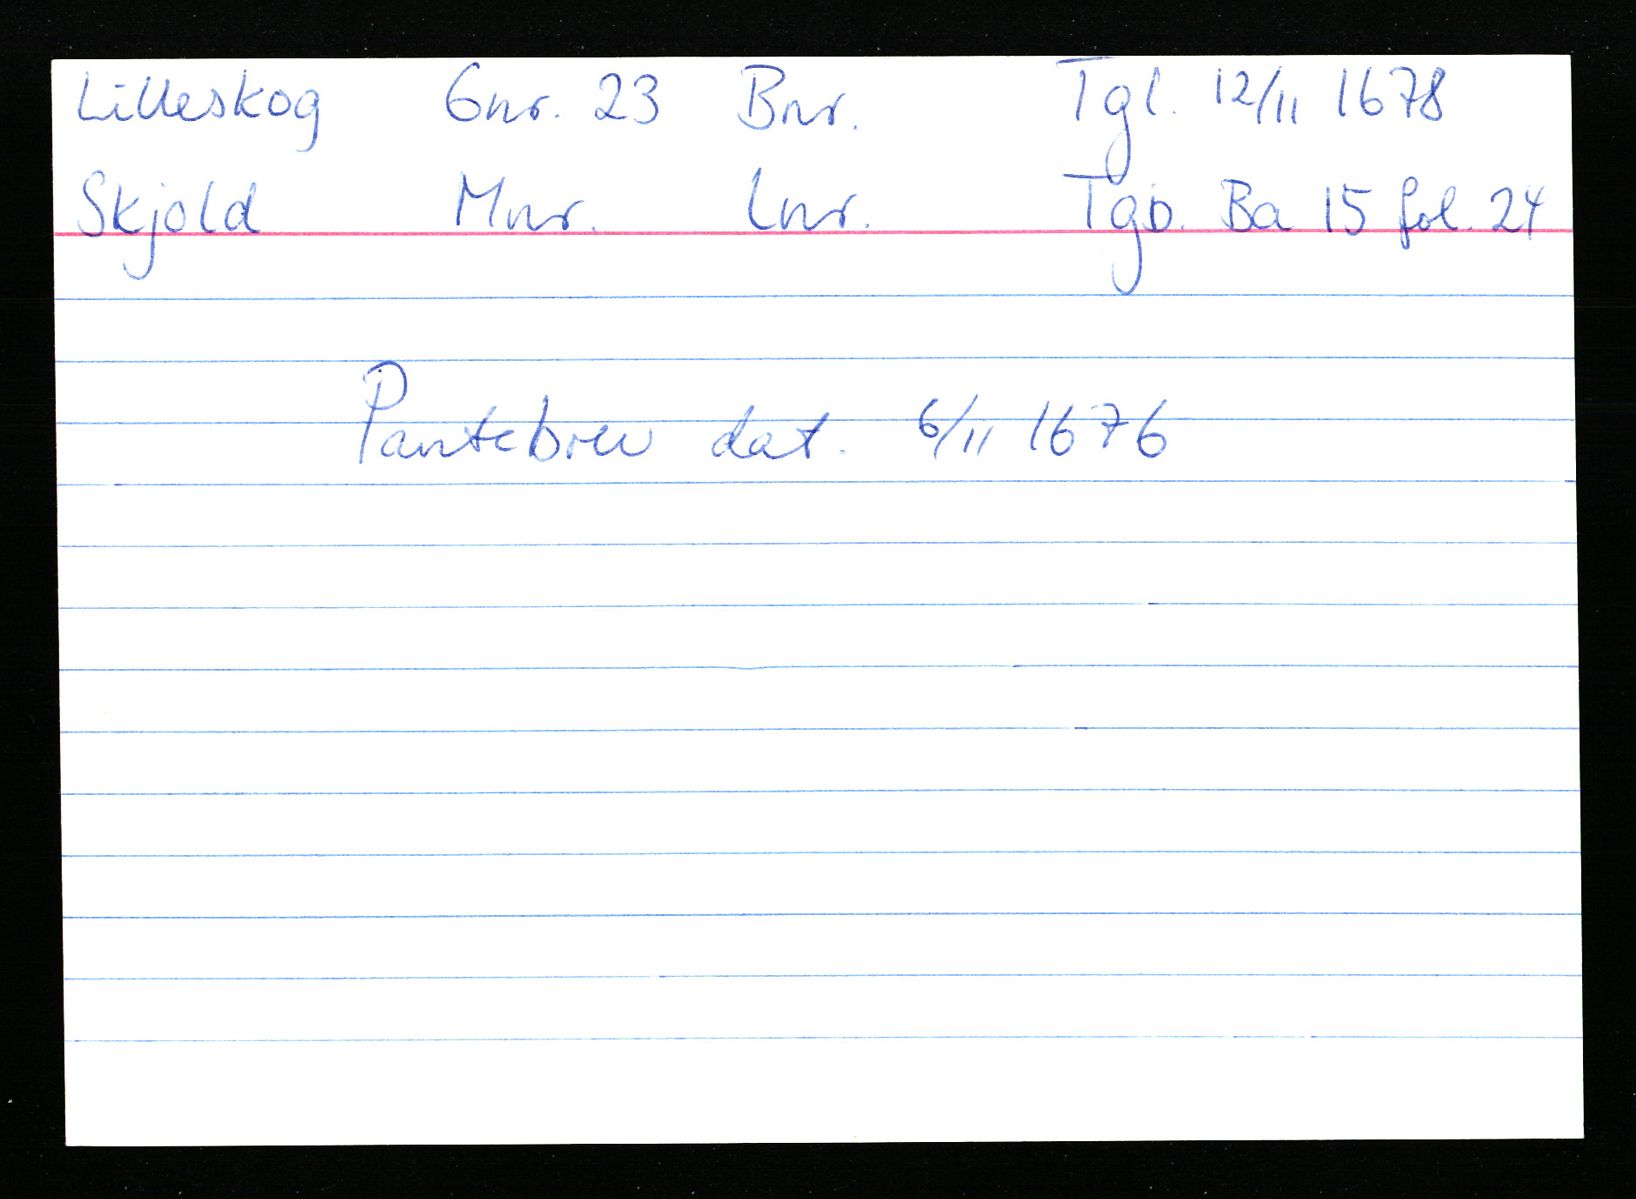 Lilleskog Gnr. 23 Bnr. Tgl. 12/11 1678
Skjold Mnr. Lnr. Tgb. Ba 15 fol. 24
Pantebrev dat. 6/11 1676